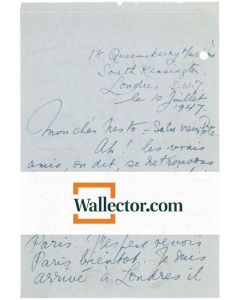 18 Queensberry Mews
South Kensington
Londres S.W.7
le 10 Juillet
1947.
Mon cher Nesto -
Ah! les vrais
amis, on dit, se retrouvons
Wallector.com
Paris. J'espère revoir
Paris bientôt. Je suis
arrivé à Londres il